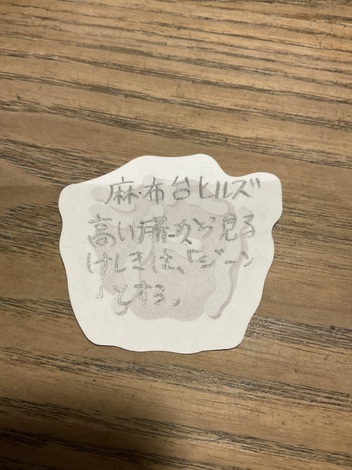 麻布台ヒルズ
高い所から見る
けしきは、「ジーン
」とする。